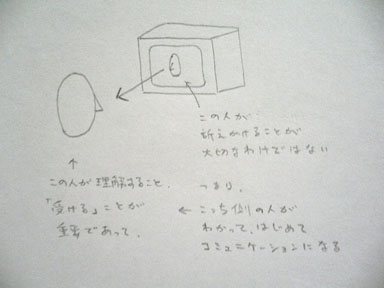 この人が
訴えかけることが
大切なわけではない
↑
この人が理解すること.
「受ける」ことが
重要であって.
つまり.
← こっち側の人が
わかって、はじめて
コミュニケーションになる